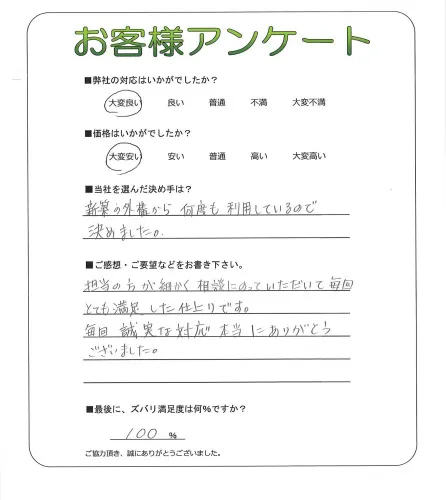 お客様アンケート
■弊社の対応はいかがでしたか?
大変良い 良い 普通 不満 大変不満
■価格はいかがでしたか?
大変安い 安い 普通 高い 大変高い
■当社を選んだ決め手は?
新築の外構から 何度も 利用しているので
決めました。
■ご感想・ご要望などをお書き下さい。
担当の方が細かく相談にのっていただいて毎回
とても満足した仕上りです。
毎回 誠実な対応 本当にありがとう
ございました。
■最後に、ズバリ満足度は何%ですか?
100 %
ご協力頂き、誠にありがとうございました。